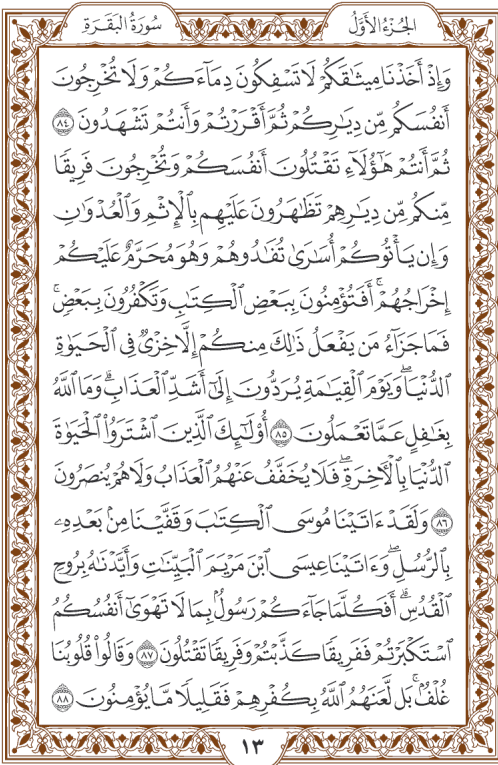 الجُزءُ الأَوَّلُ
سُورَةُ البَقَرَةِ
وَإِذْ أَخَذْنَا مِيثَٰقَكُمْ لَا تَسْفِكُونَ دِمَآءَكُمْ وَلَا تُخْرِجُونَ
أَنفُسَكُم مِّن دِيَٰرِكُمْ ثُمَّ أَقْرَرْتُمْ وَأَنتُمْ تَشْهَدُونَ ٨٤
ثُمَّ أَنتُمْ هَٰٓؤُلَآءِ تَقْتُلُونَ أَنفُسَكُمْ وَتُخْرِجُونَ فَرِيقًا
مِّنكُم مِّن دِيَٰرِهِمْ تَظَٰهَرُونَ عَلَيْهِم بِٱلْإِثْمِ وَٱلْعُدْوَٰنِ
وَإِن يَأْتُوكُمْ أُسَٰرَىٰ تُفَٰدُوهُمْ وَهُوَ مُحَرَّمٌ عَلَيْكُمْ
إِخْرَاجُهُمْ ۚ أَفَتُؤْمِنُونَ بِبَعْضِ ٱلْكِتَٰبِ وَتَكْفُرُونَ بِبَعْضٍ ۚ
فَمَا جَزَآءُ مَن يَفْعَلُ ذَٰلِكَ مِنكُمْ إِلَّا خِزْىٌ فِى ٱلْحَيَوٰةِ
ٱلدُّنْيَا ۖ وَيَوْمَ ٱلْقِيَٰمَةِ يُرَدُّونَ إِلَىٰٓ أَشَدِّ ٱلْعَذَابِ ۗ وَمَا ٱللَّهُ
بِغَٰفِلٍ عَمَّا تَعْمَلُونَ ٨٥ أُو۟لَٰٓئِكَ ٱلَّذِينَ ٱشْتَرَوُا۟ ٱلْحَيَوٰةَ
ٱلدُّنْيَا بِٱلْءَاخِرَةِ ۖ فَلَا يُخَفَّفُ عَنْهُمُ ٱلْعَذَابُ وَلَا هُمْ يُنصَرُونَ
٨٦ وَلَقَدْ ءَاتَيْنَا مُوسَى ٱلْكِتَٰبَ وَقَفَّيْنَا مِنۢ بَعْدِهِۦ
بِٱلرُّسُلِ ۖ وَءَاتَيْنَا عِيسَى ٱبْنَ مَرْيَمَ ٱلْبَيِّنَٰتِ وَأَيَّدْنَٰهُ بِرُوحِ
ٱلْقُدُسِ ۗ أَفَكُلَّمَا جَآءَكُمْ رَسُولٌۢ بِمَا لَا تَهْوَىٰٓ أَنفُسُكُمُ
ٱسْتَكْبَرْتُمْ فَفَرِيقًا كَذَّبْتُمْ وَفَرِيقًا تَقْتُلُونَ ٨٧ وَقَالُوا۟ قُلُوبُنَا
غُلْفٌۢ ۚ بَل لَّعَنَهُمُ ٱللَّهُ بِكُفْرِهِمْ فَقَلِيلًا مَّا يُؤْمِنُونَ ٨٨
١٣